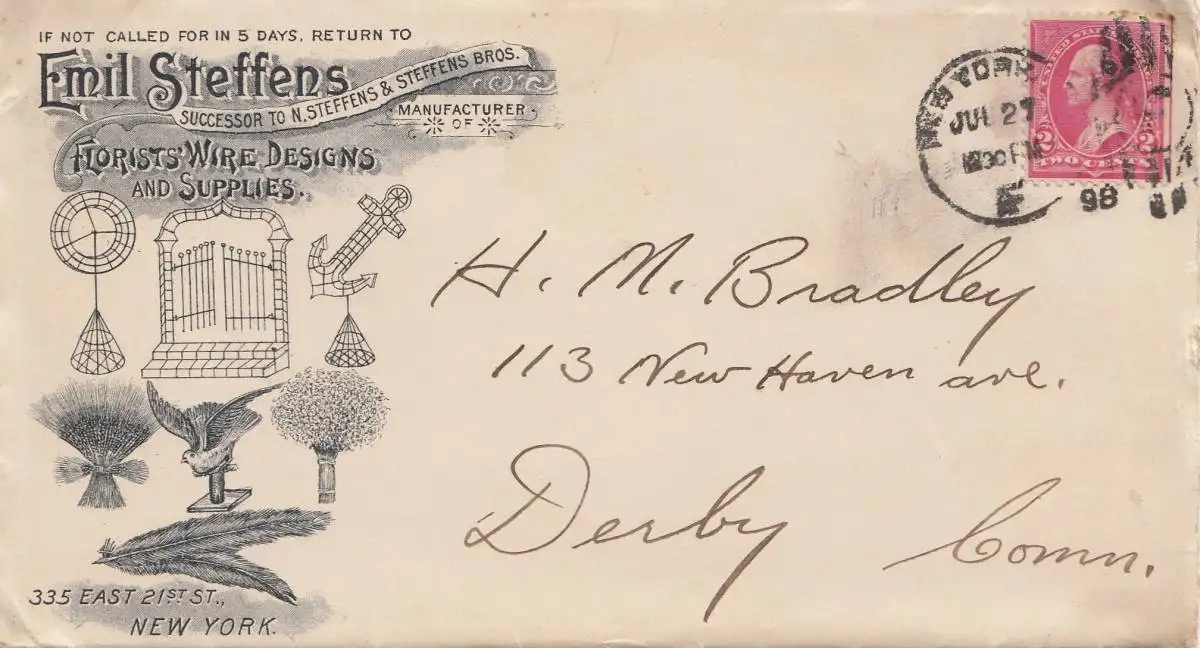 IF NOT CALLED FOR IN 5 DAYS, RETURN TO
Emil Steffens
SUCCESSOR TO N. STEFFENS & STEFFENS BROS.
MANUFACTURER
OF
FLORISTS' WIRE DESIGNS
AND SUPPLIES.
335 EAST 21ST ST.,
NEW YORK.
NEW YORK
JUL 27
98
UNITED STATES
2 2
TWO CENTS
H. M. Bradley
113 New Haven ave.
Derby Conn.